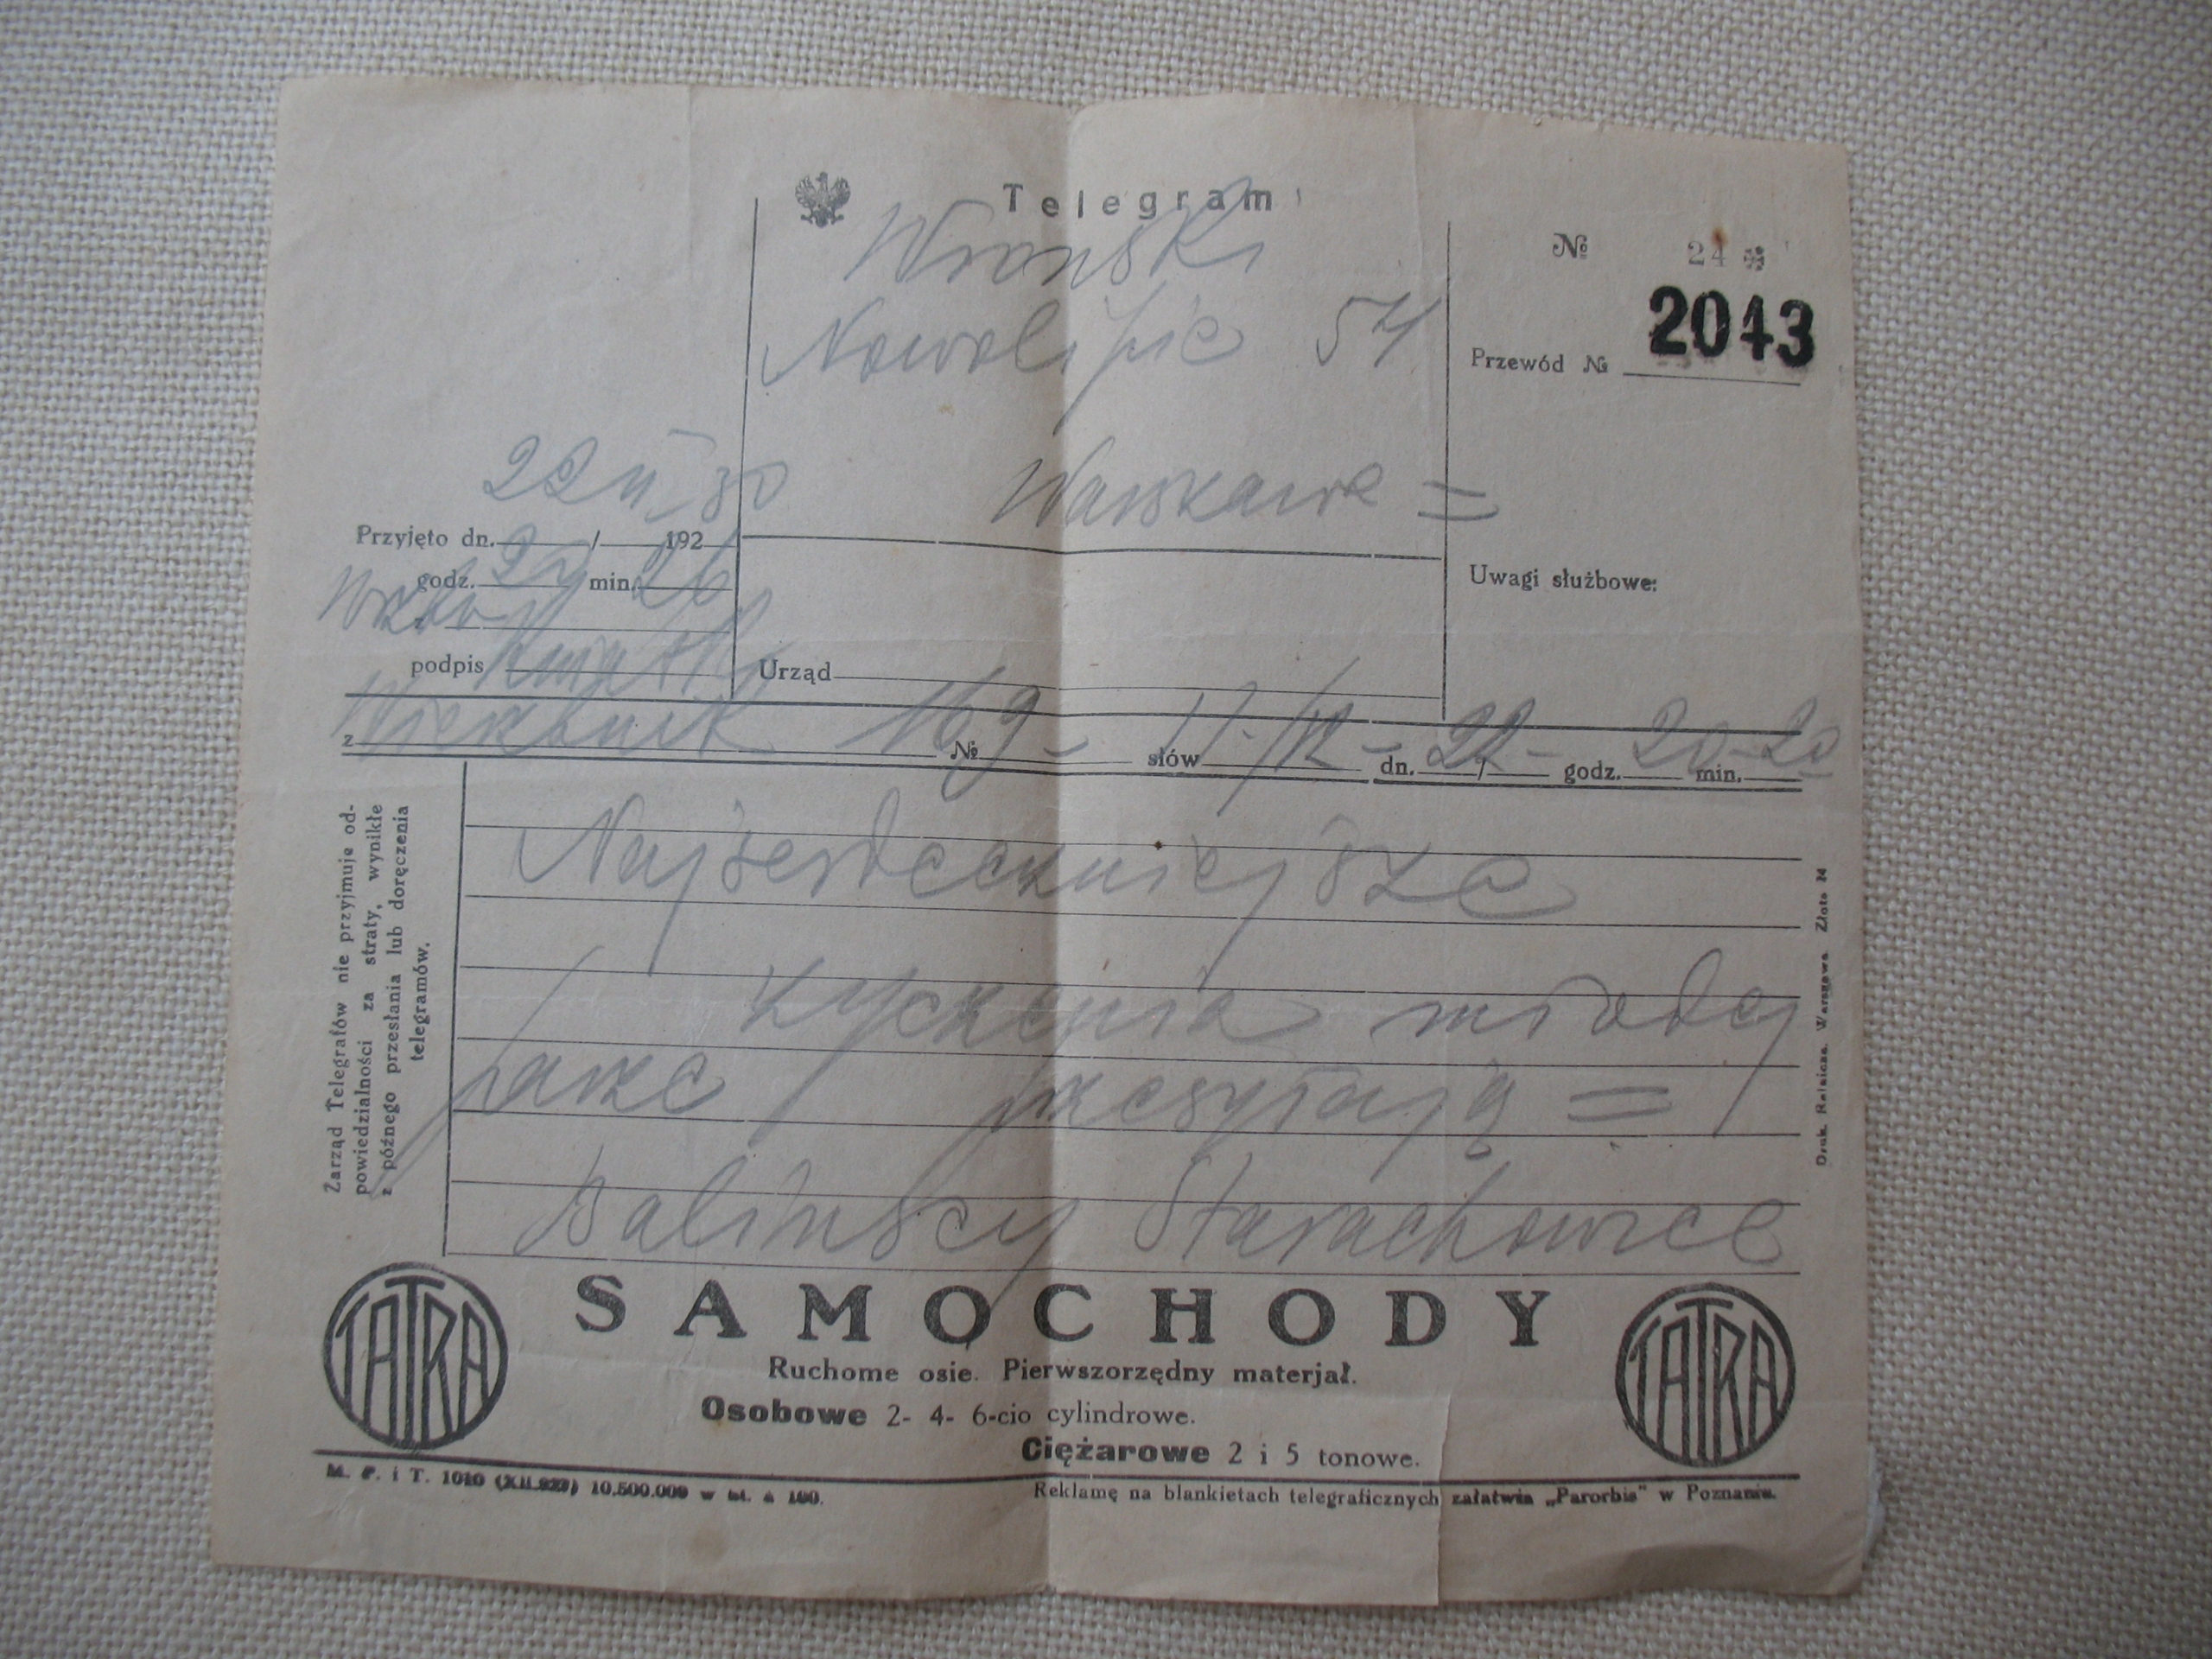 Telegram
Wronski
Nowolipie 54
Warszawa =
№ 24
Przewód № 2043
22 II 30
Przyjęto dn. / 192
godz. 22 min. 26
podpis
Urząd
Uwagi służbowe:
z Wierzbnik № 169 - słów 11/12 - dn. 22 - / godz. 20 - min. 20
Najserdeczniejsze
życzenia młodej
parze przesyłają =
Balinscy Starachowice
Zarząd Telegrafów nie przyjmuje od-
powiedzialności za straty, wynikłe
z późnego przesłania lub doręczenia
telegramów.
Druk. Rolnicza. Warszawa. Złota 24
TATRA
SAMOCHODY
TATRA
Ruchome osie. Pierwszorzędny materjał.
Osobowe 2- 4- 6-cio cylindrowe.
Ciężarowe 2 i 5 tonowe.
M. P. i T. 1010 (XII.927) 10.500.000 w bl. à 100.
Reklamę na blankietach telegraficznych załatwia „Parorbis" w Poznaniu.